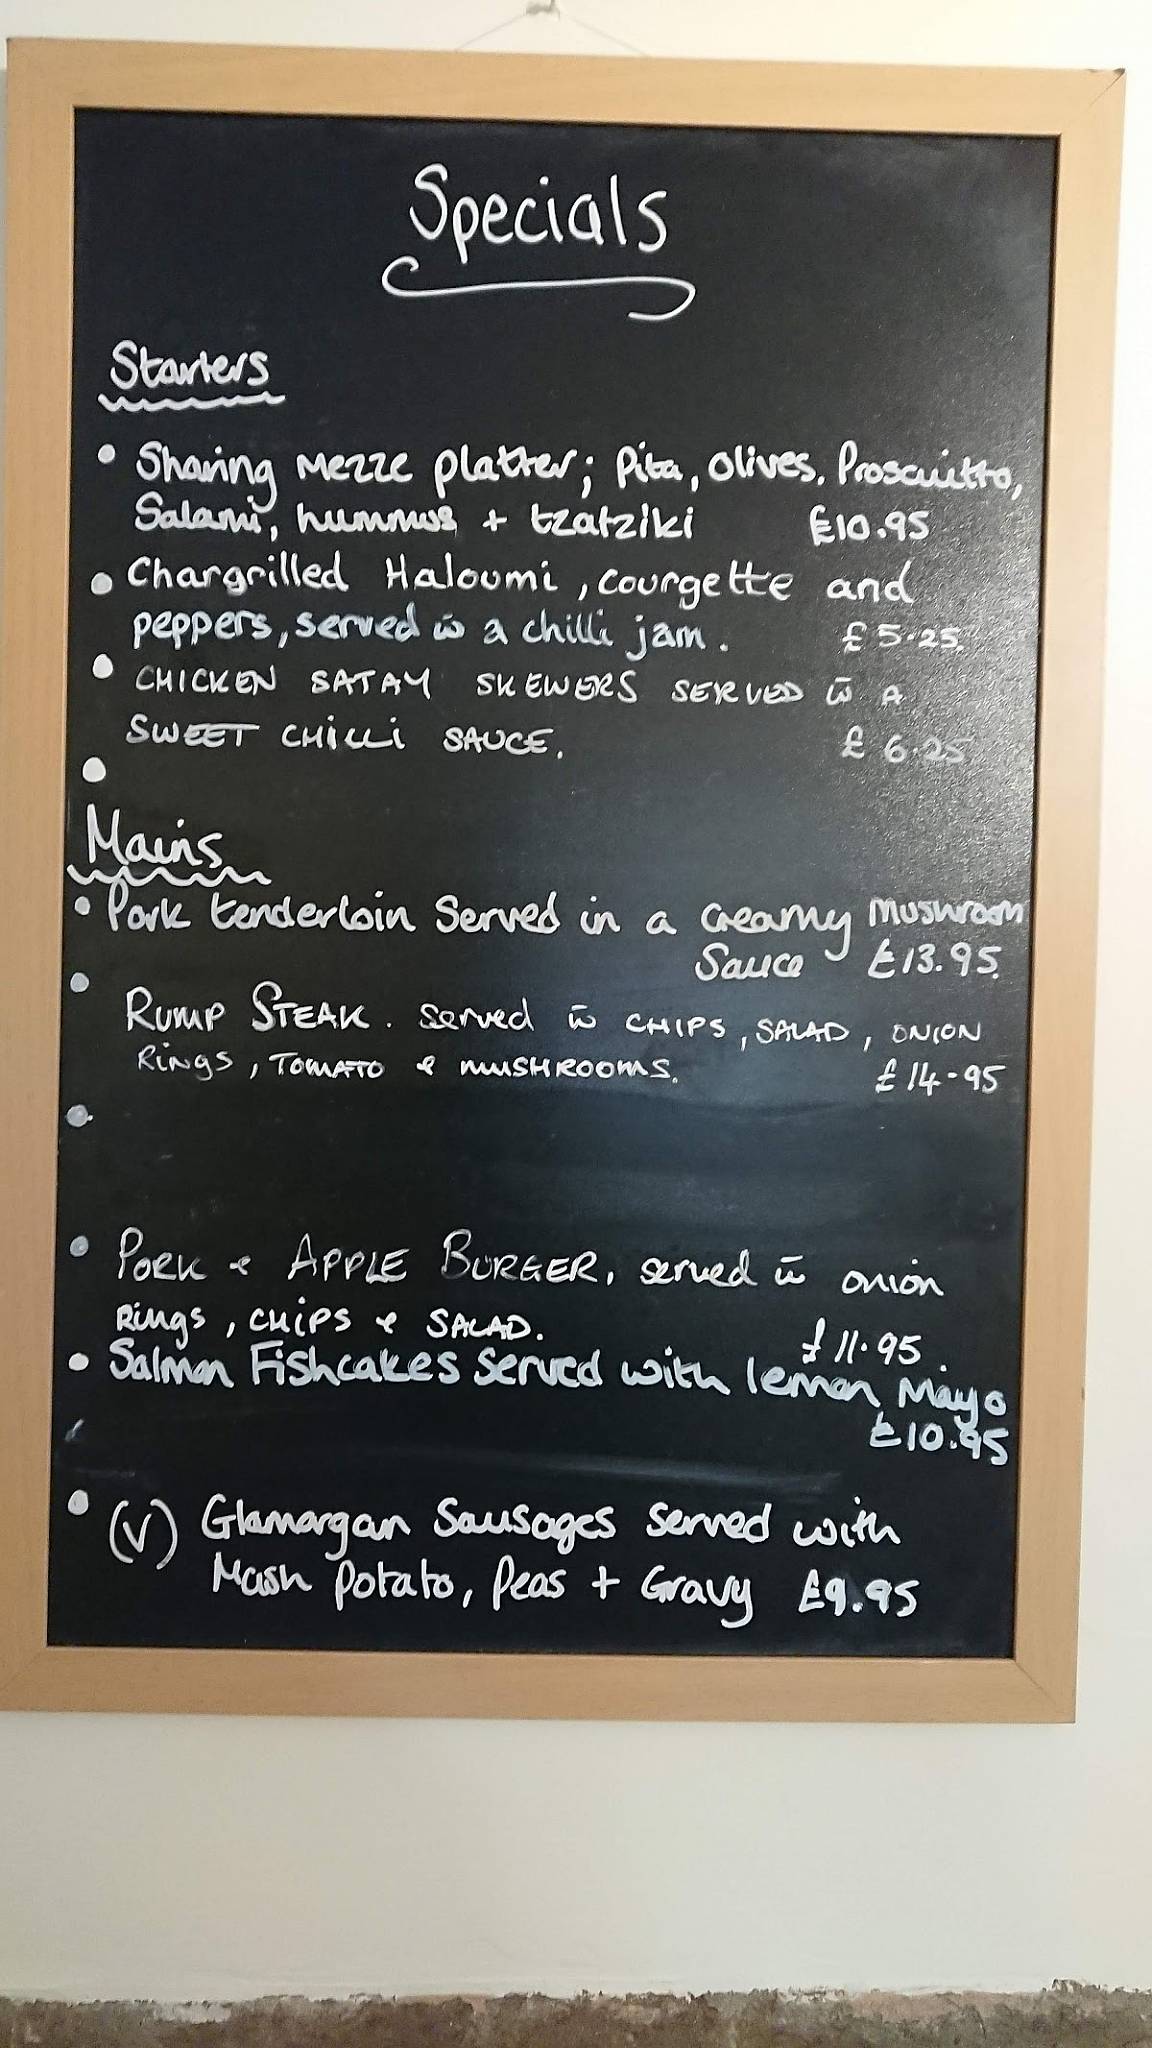 Specials
Starters
• Sharing Mezze platter; Pita, Olives, Proscuitto,
Salami, hummus + tzatziki £10.95
• Chargrilled Haloumi, courgette and
peppers, served w̄ a chilli jam. £5.25
• CHICKEN SATAY SKEWERS SERVED w̄ A
SWEET CHILLI SAUCE. £6.25
•
Mains
• Pork tenderloin Served in a Creamy Mushroom
Sauce £13.95
•
RUMP STEAK. served w̄ CHIPS, SALAD, ONION
RINGS, TOMATO & MUSHROOMS. £14-95
•
• PORK & APPLE BURGER, served w̄ onion
Rings, CHIPS & SALAD. £11.95.
• Salmon Fishcakes Served with lemon Mayo
£10.95
• (V) Glamorgan Sausages Served with
Mash Potato, Peas + Gravy £9.95